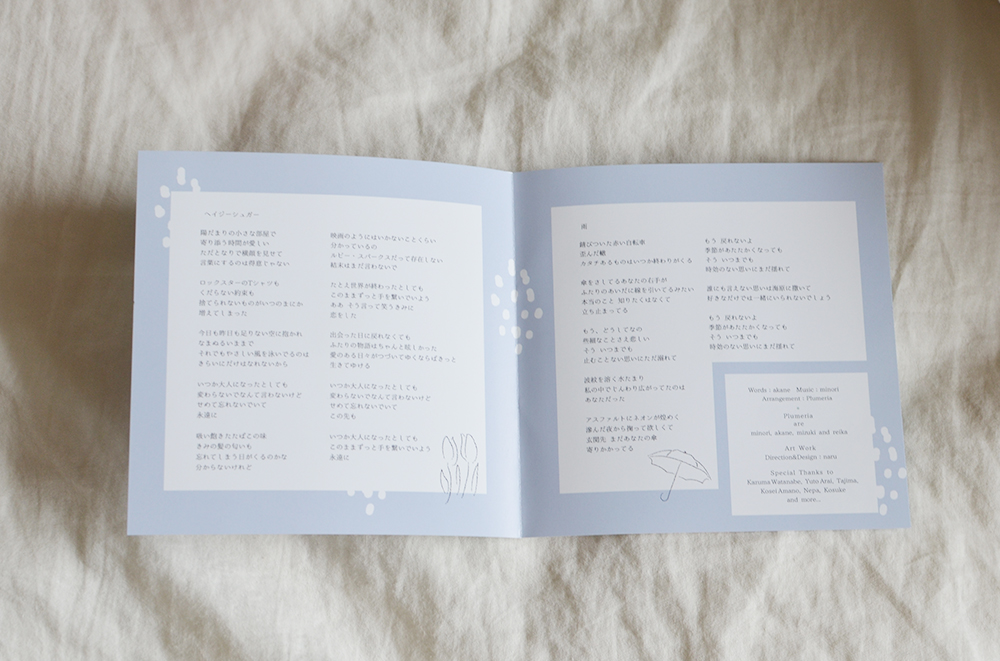 ヘイジーシュガー
陽だまりの小さな部屋で
寄り添う時間が愛しい
ただとなりで横顔を見せて
言葉にするのは得意じゃない
ロックスターのTシャツも
くだらない約束も
捨てられないものがいつのまにか
増えてしまった
今日も昨日も足りない空に抱かれ
なまぬるいままで
それでもやさしい風を泳いでるのは
きらいにだけはなれないから
いつか大人になったとしても
変わらないでなんて言わないけど
せめて忘れないでいて
永遠に
吸い飽きたたばこの味
きみの髪の匂いも
忘れてしまう日がくるのかな
分からないけれど
映画のようにはいかないことくらい
分かっているの
ルビー・スパークスだって存在しない
結末はまだ言わないで
たとえ世界が終わったとしても
このままずっと手を繋いでいよう
ああ そう言って笑うきみに
恋をした
出会った日に戻れなくても
ふたりの物語はちゃんと眩しかった
愛のある日々がつづいてゆくならばきっと
生きてゆける
いつか大人になったとしても
変わらないでなんて言わないけど
せめて忘れないでいて
この先も
いつか大人になったとしても
このままずっと手を繋いでいよう
永遠に
雨
錆びついた赤い自転車
歪んだ鍵
カタチあるものはいつか終わりがくる
傘をさしてるあなたの右手が
ふたりのあいだに線を引いてるみたい
本当のこと 知りたくはなくて
立ち止まってる
もう、どうしてなの
些細なことさえ悲しい
そう いつまでも
止むことない思いにただ溺れて
波紋を溶く水たまり
私の中でじんわり広がってたのは
あなただった
アスファルトにネオンが煌めく
滲んだ夜から掬って欲しくて
玄関先 まだあなたの傘
寄りかかってる
もう 戻れないよ
季節があたたかくなっても
そう いつまでも
時効のない思いにまだ揺れて
誰にも言えない思いは海底に撒いて
好きなだけでは一緒にいられないでしょう
もう 戻れないよ
季節があたたかくなっても
そう いつまでも
時効のない思いにまだ揺れて
Words : akane Music : minori
Arrangement : Plumeria
+
Plumeria
are
minori, akane, mizuki and reika
Art Work
Direction&Design : naru
Special Thanks to
Kazuma Watanabe, Yuto Arai, Tajima,
Kosei Amano, Nepa, Kosuke
and more...